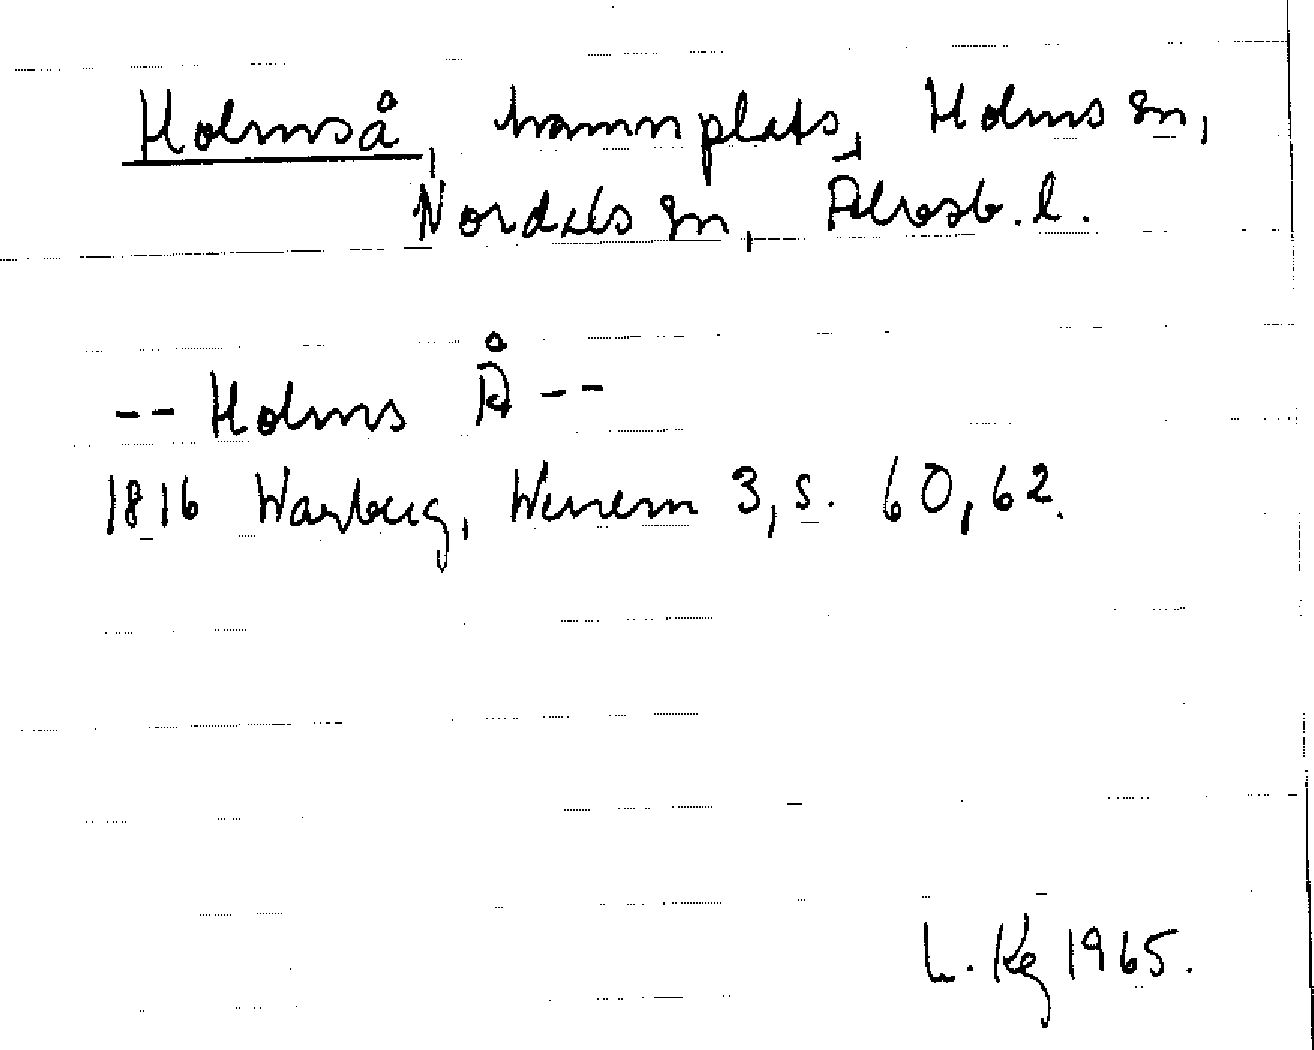 Holmså, hamnplats, Holms sn,
Nordals sn, Älvsb. l.
-- Holms Å --
1816 Warberg, Wenern 3, s. 60, 62.
L. Kg 1965.